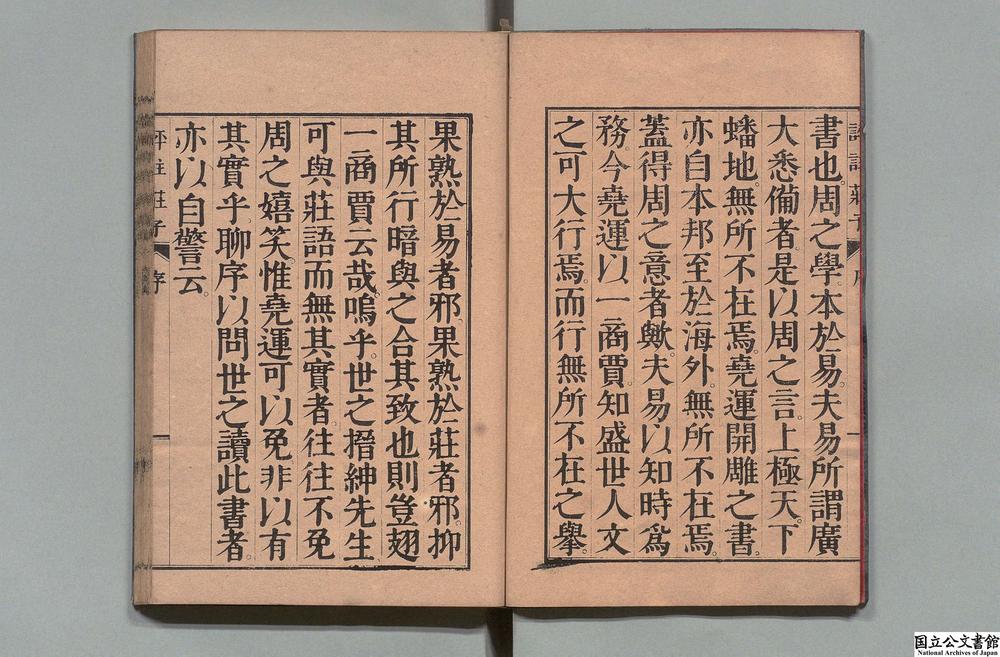 書也。周之學。本於易。夫易所謂廣
大悉備者。是以周之言。上極天。下
蟠地。無所不在焉。堯運開雕之書。
亦自本邦至於海外。無所不在焉。
蓋得周之意者歟。夫易以知時爲
務。今堯運以一商賈。知盛世人文
之可大行焉。而行無所不在之擧。
果熟於易者邪。果熟於莊者邪。抑
其所行暗與之合其致也。則豈翅
一商賈云哉。嗚乎。世之搢紳先生
可與莊語而無其實者。往往不免
周之嬉笑。惟堯運可以免非以有
其實乎。聊序以問世之讀此書者。
亦以自警云。
評註莊子 序
国立公文書館
National Archives of Japan